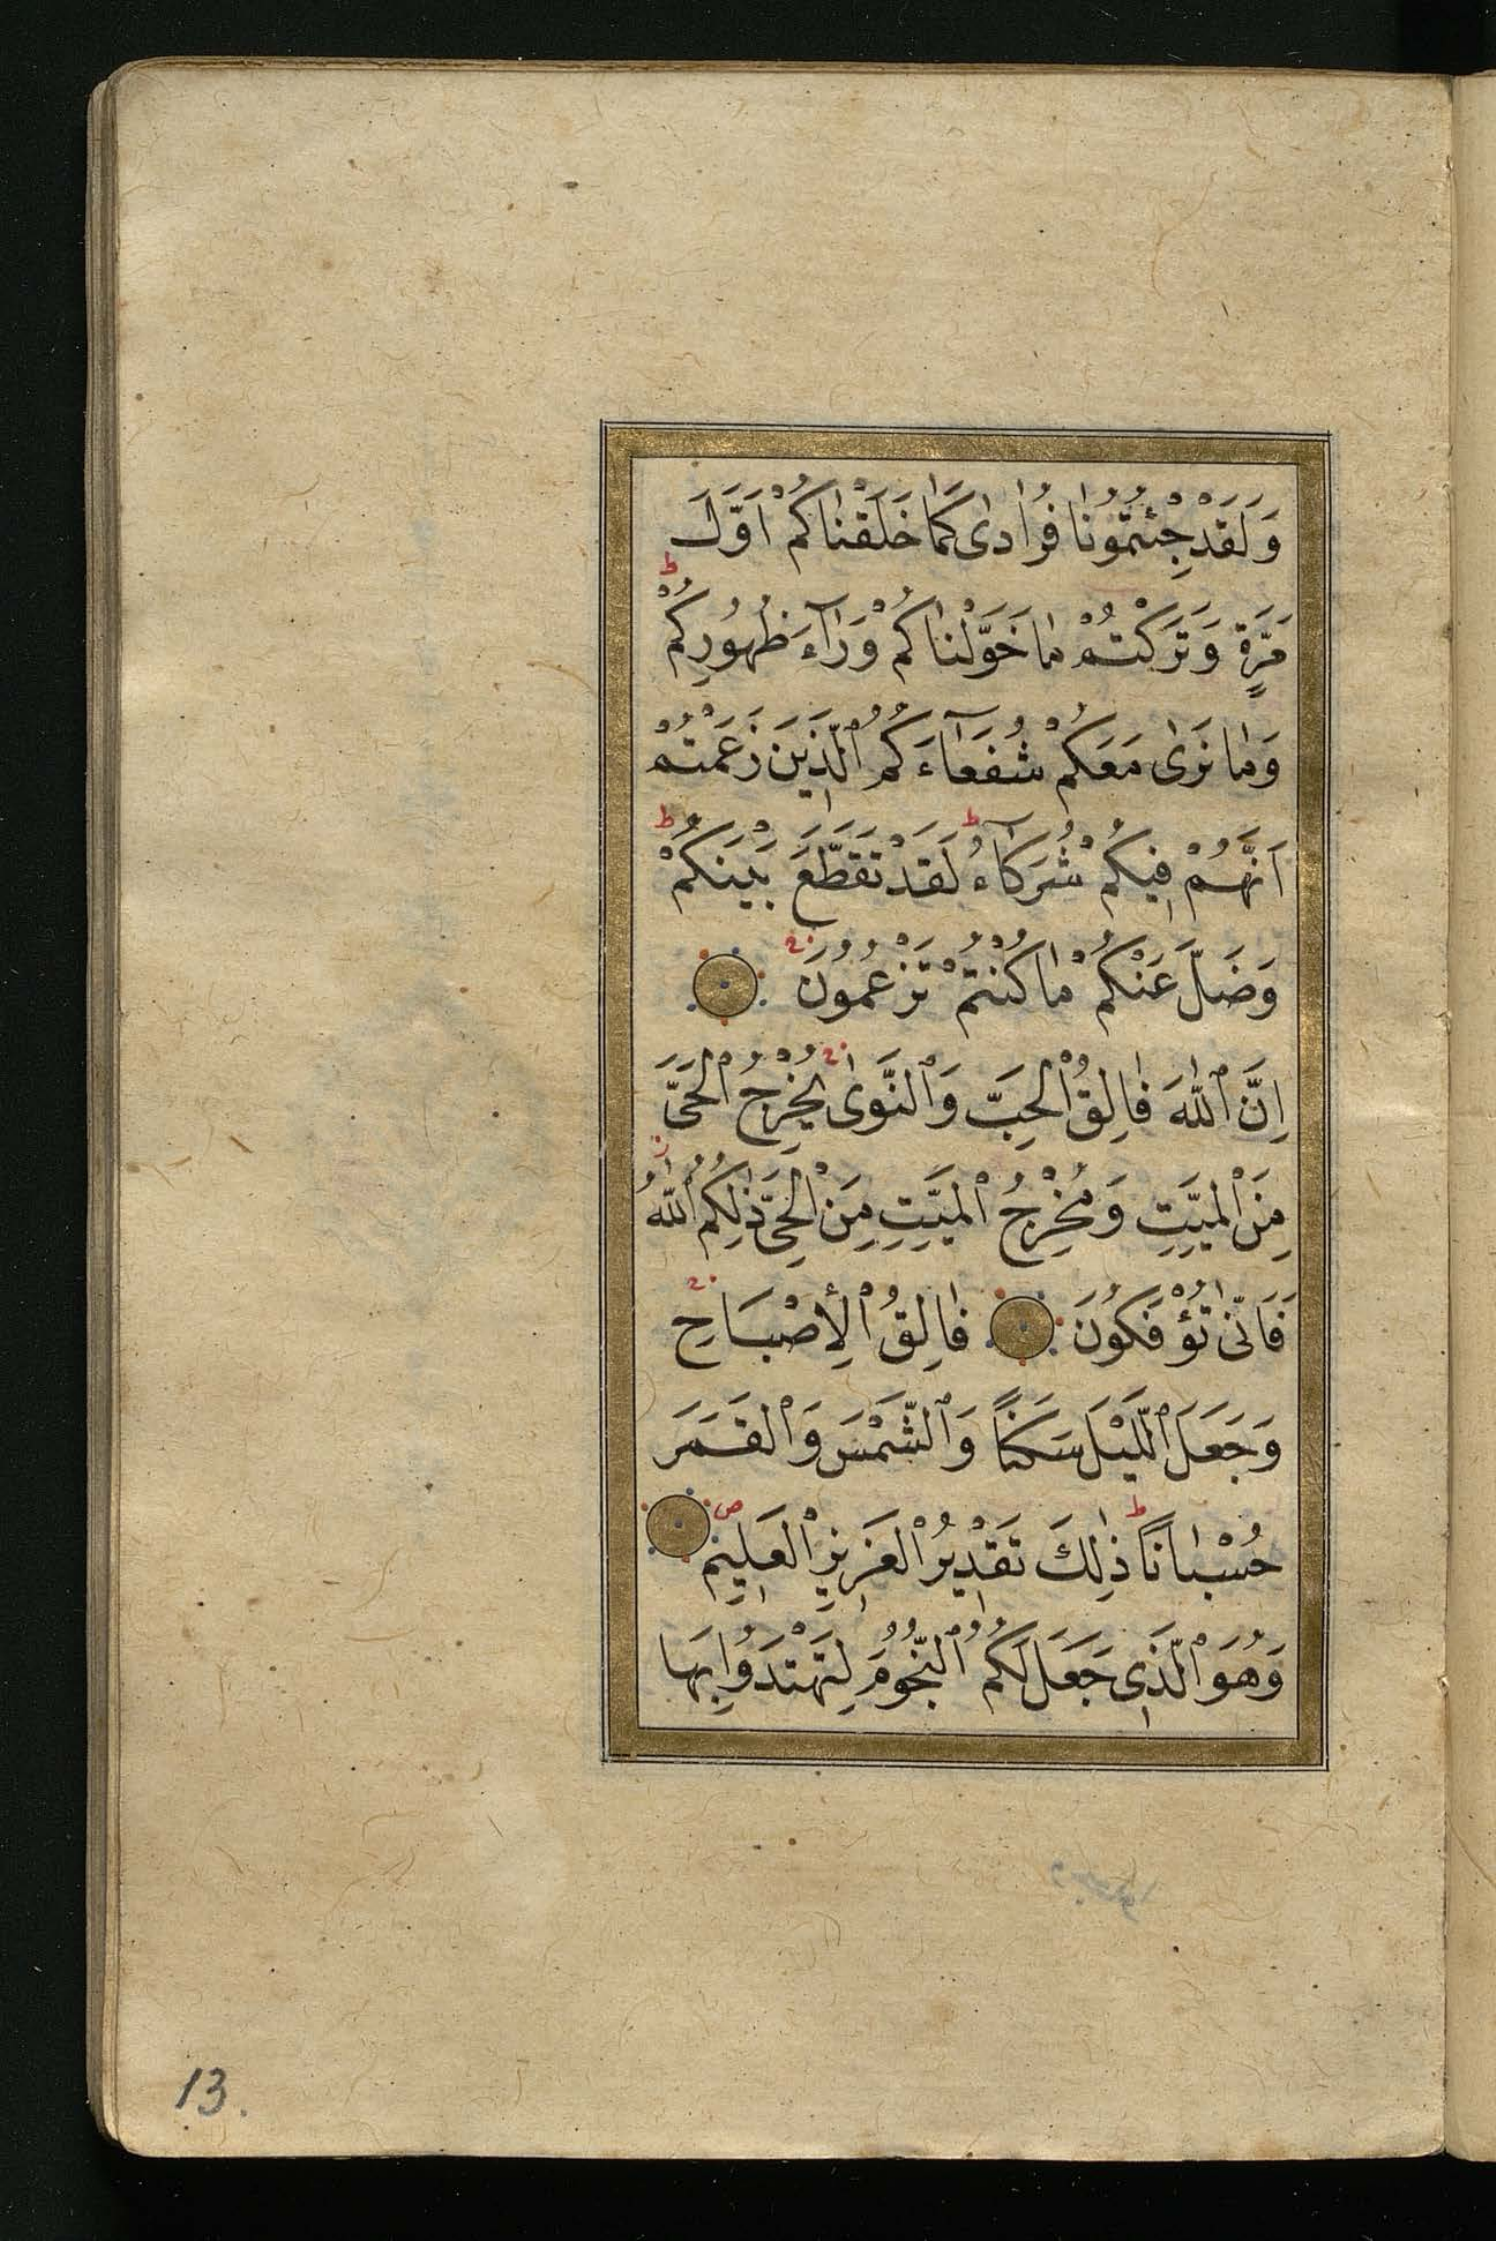 وَلَقَدْ جِئْتُمُونَا فُرَادٰى كَمَا خَلَقْنَاكُمْ اَوَّلَ
مَرَّةٍ وَتَرَكْتُمْ مَا خَوَّلْنَاكُمْ وَرَآءَ ظُهُورِكُمْ ط
وَمَا نَرٰى مَعَكُمْ شُفَعَآءَكُمُ الَّذِينَ زَعَمْتُمْ
اَنَّهُمْ فِيكُمْ شُرَكَآءُ ط لَقَدْ تَقَطَّعَ بَيْنَكُمْ ط
وَضَلَّ عَنْكُمْ مَا كُنْتُمْ تَزْعُمُونَ
اِنَّ اللّٰهَ فَالِقُ الْحَبِّ وَالنَّوٰى يُخْرِجُ الْحَىَّ
مِنَ الْمَيِّتِ وَمُخْرِجُ الْمَيِّتِ مِنَ الْحَىِّ ذٰلِكُمُ اللّٰهُ
فَاَنّٰى تُؤْفَكُونَ فَالِقُ الْأِصْبَاحِ
وَجَعَلَ اللَّيْلَ سَكَنًا وَالشَّمْسَ وَالْقَمَرَ
حُسْبَانًا ط ذٰلِكَ تَقْدِيرُ الْعَزِيزِ الْعَلِيمِ ص
وَهُوَ الَّذِى جَعَلَ لَكُمُ النُّجُومَ لِتَهْتَدُوا بِهَا
13.